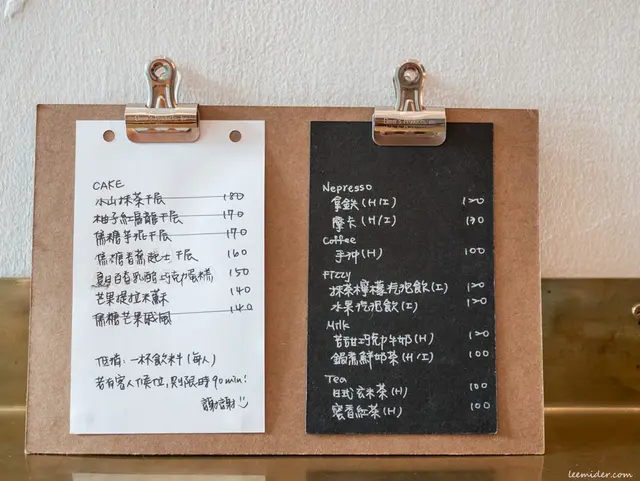 CAKE
小山抹茶千层 180
柚子紅烏龍千层 170
焦糖羊羽千层 170
焦糖香蕉起士千层 160
夏日百香乳酪巧克力蛋糕 150
芒果提拉米蘇 140
焦糖芒果戚風 140
低消:一杯飲料(每人)
若有客人候位,則限時90min!
謝謝!
Nepresso
拿鉄(H/I) 120
摩卡(H/I) 130
Coffee
手沖(H) 100
Fizzy
抹茶檸檬氣泡飲(I) 120
水果氣泡飲(I) 120
Milk
苦甜巧克力牛奶(H) 120
鍋煮鮮奶茶(H/I) 100
Tea
日式玄米茶(H) 100
蜜香紅茶(H) 100
leemider.com